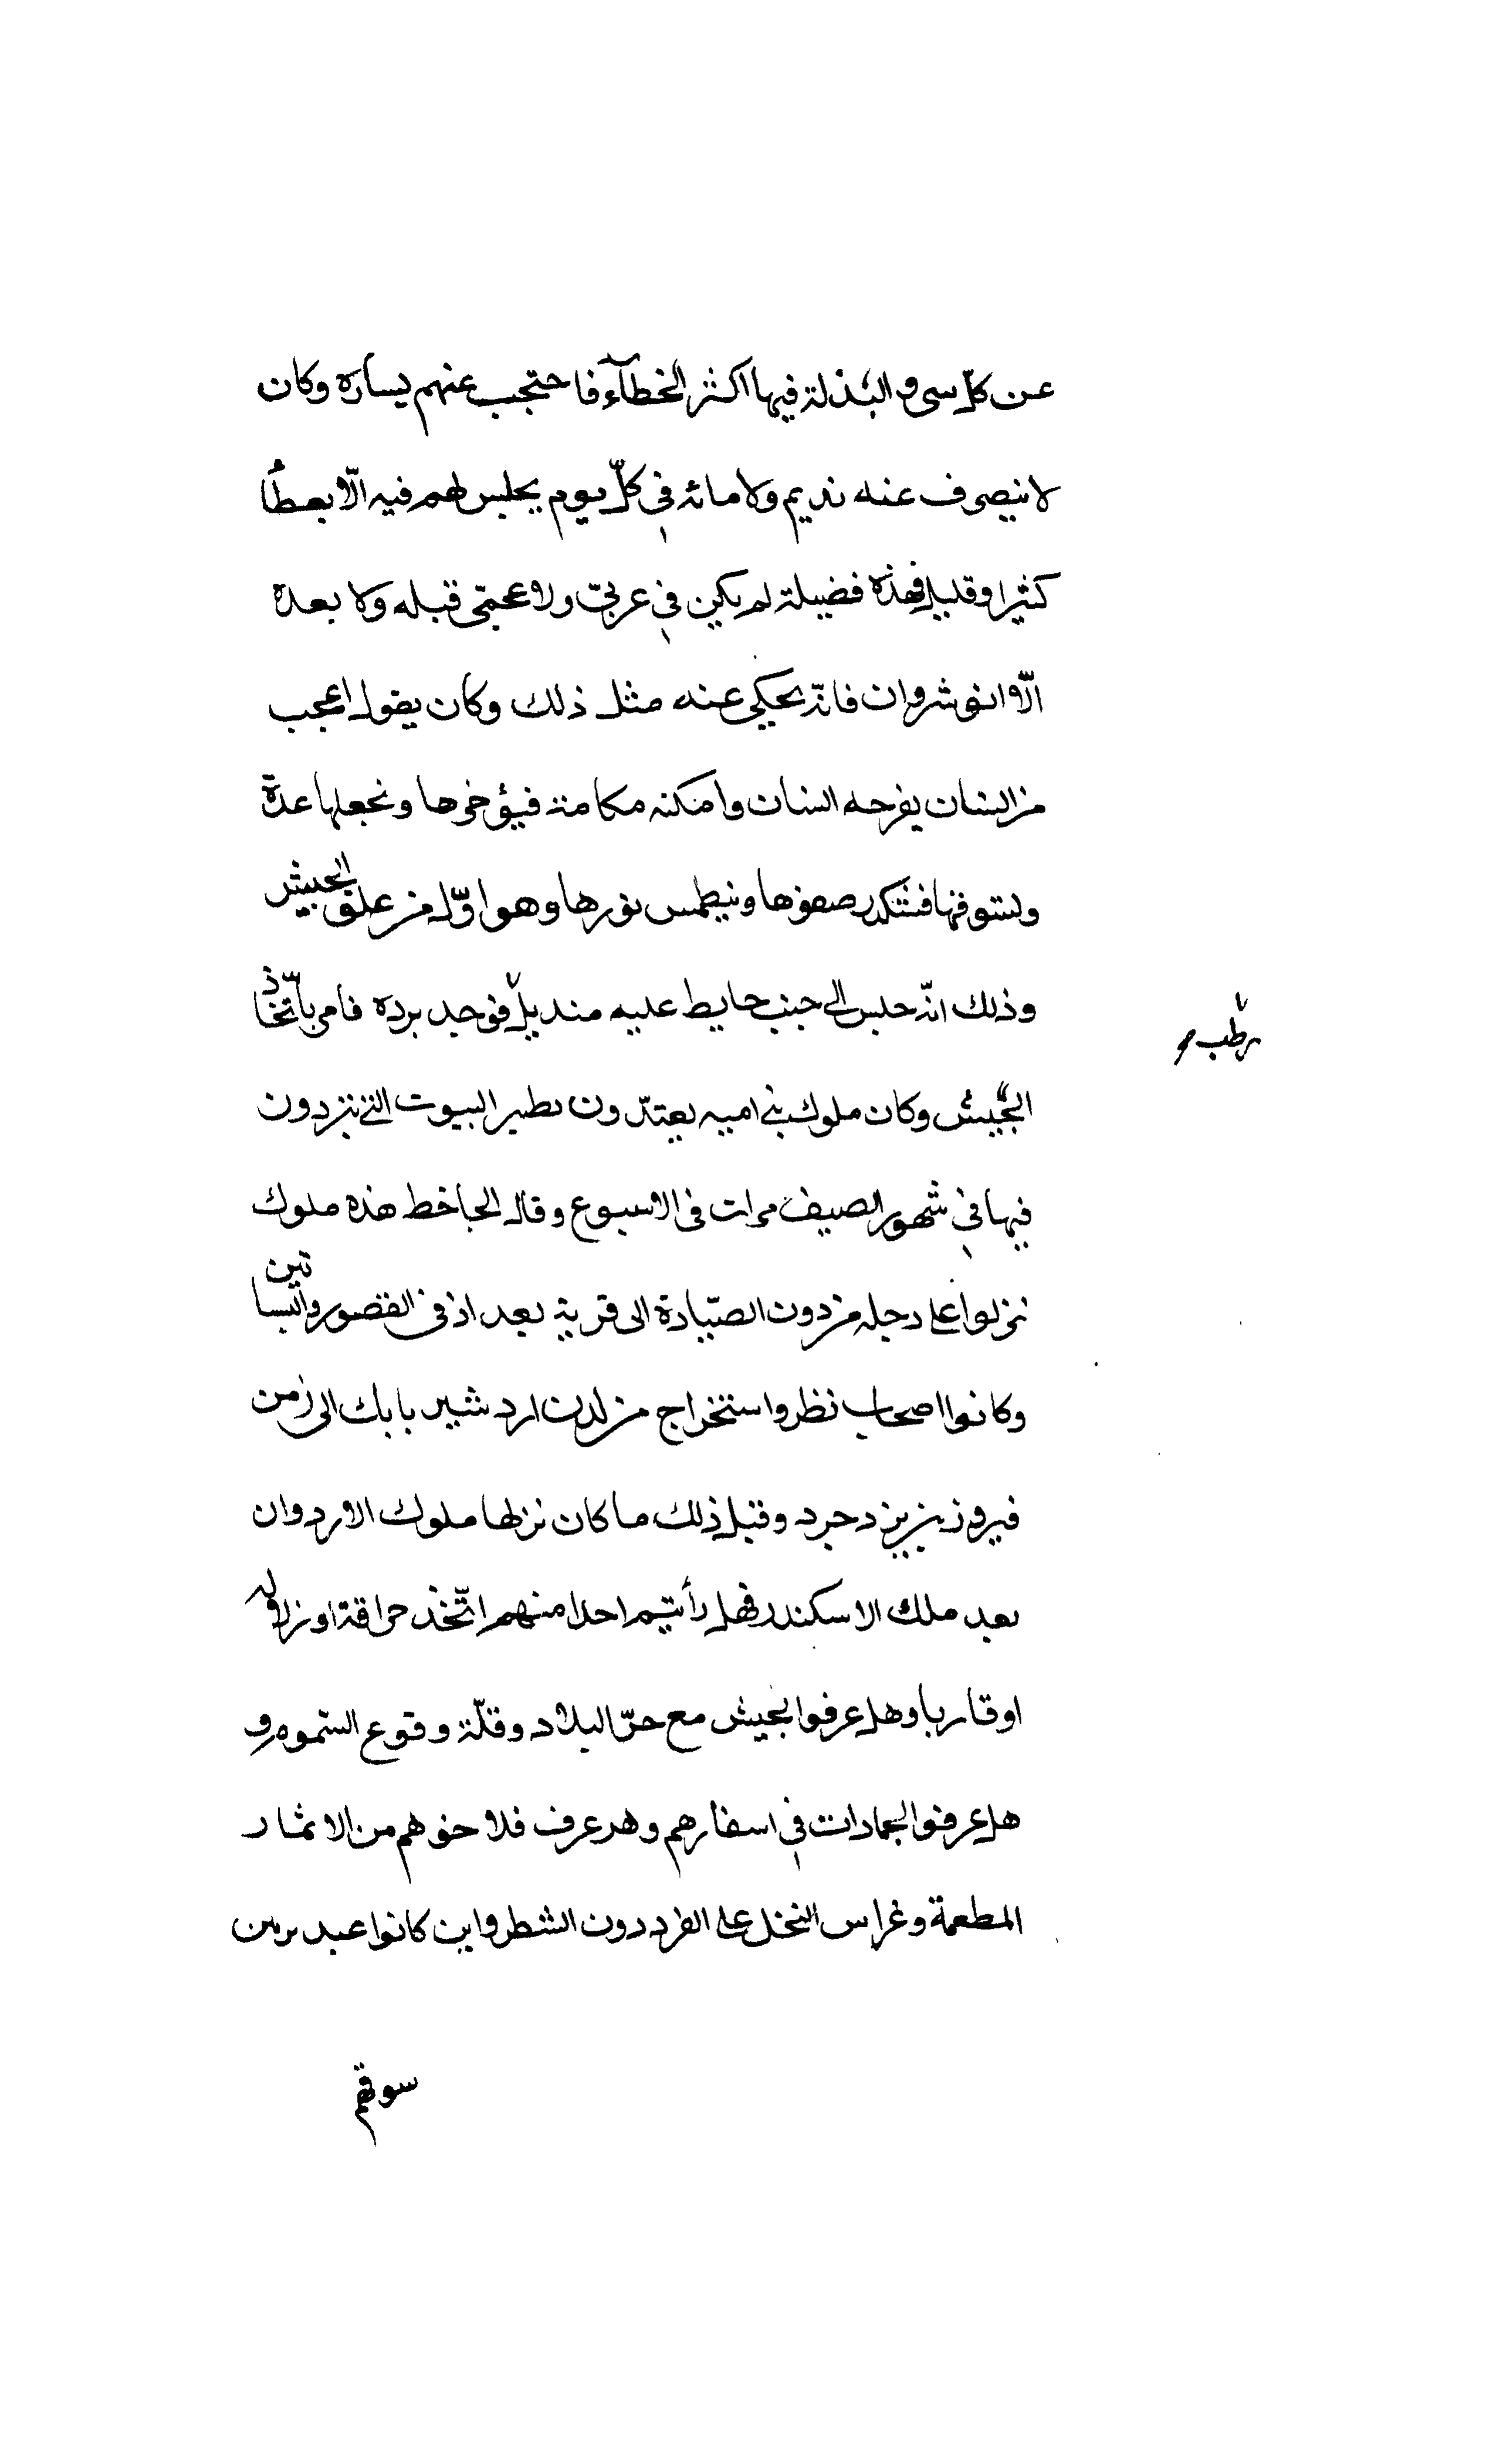 عن كلّ سى و البذلة فيها اكثر الخطآء فاحتجب عنهم يساره وكان
لا ينصرف عنه نديم ولا مائه في كلّ يوم يجلس لهم فيه الّا بعطأ
كثيرا وقليل فهذه فضيلة لم يكن في عربىّ ولا عجمّى قبله ولا بعده
الّا انوشروان فانّه يحكى عنه مثل ذلك وكان يقول اعجب
من انسان يفرحه انسان وامكنه مكامنة فيؤخرها ونجعلها عدة
ولسوفها فتتكدر صفوها وينطمس نورها وهو اوّل من علق الخيش
وذلك انّه جلس الى جنب حايط عليه منديل فوجد برده فامر باتّخاذ
رطب
الخيش وكان ملوك بنى اميه يعتدّون تطير البيوت التي تبردون
فيها في شهور الصيف مرات فى الاسبوع وقال الجاحظ هذه ملوك
نزلوا على دجله من دون الصيّادة الى قرية بعد اذ فى القصور والبساتين
وكانوا اصحاب نظر واستخراج من لدن اردشير بابك الى زمن
فيروز بن يزدجرد وقبل ذلك ما كان نزلها ملوك الاردوان
بعد ملك الاسكندر فهل رأيتم احدا منهم اتّخذ حراقة او زلاله
او قاربا وهل عرفوا بخيش مع حرّ البلاد وقلّة وقوع السّموم و
هل عرفوا الجمادات في اسفارهم وهد عرف فلاحوهم من الاثمار
المطعمة وغراس النخل على الفرد دون الشطر واين كانوا عبد برمن
سوقهم